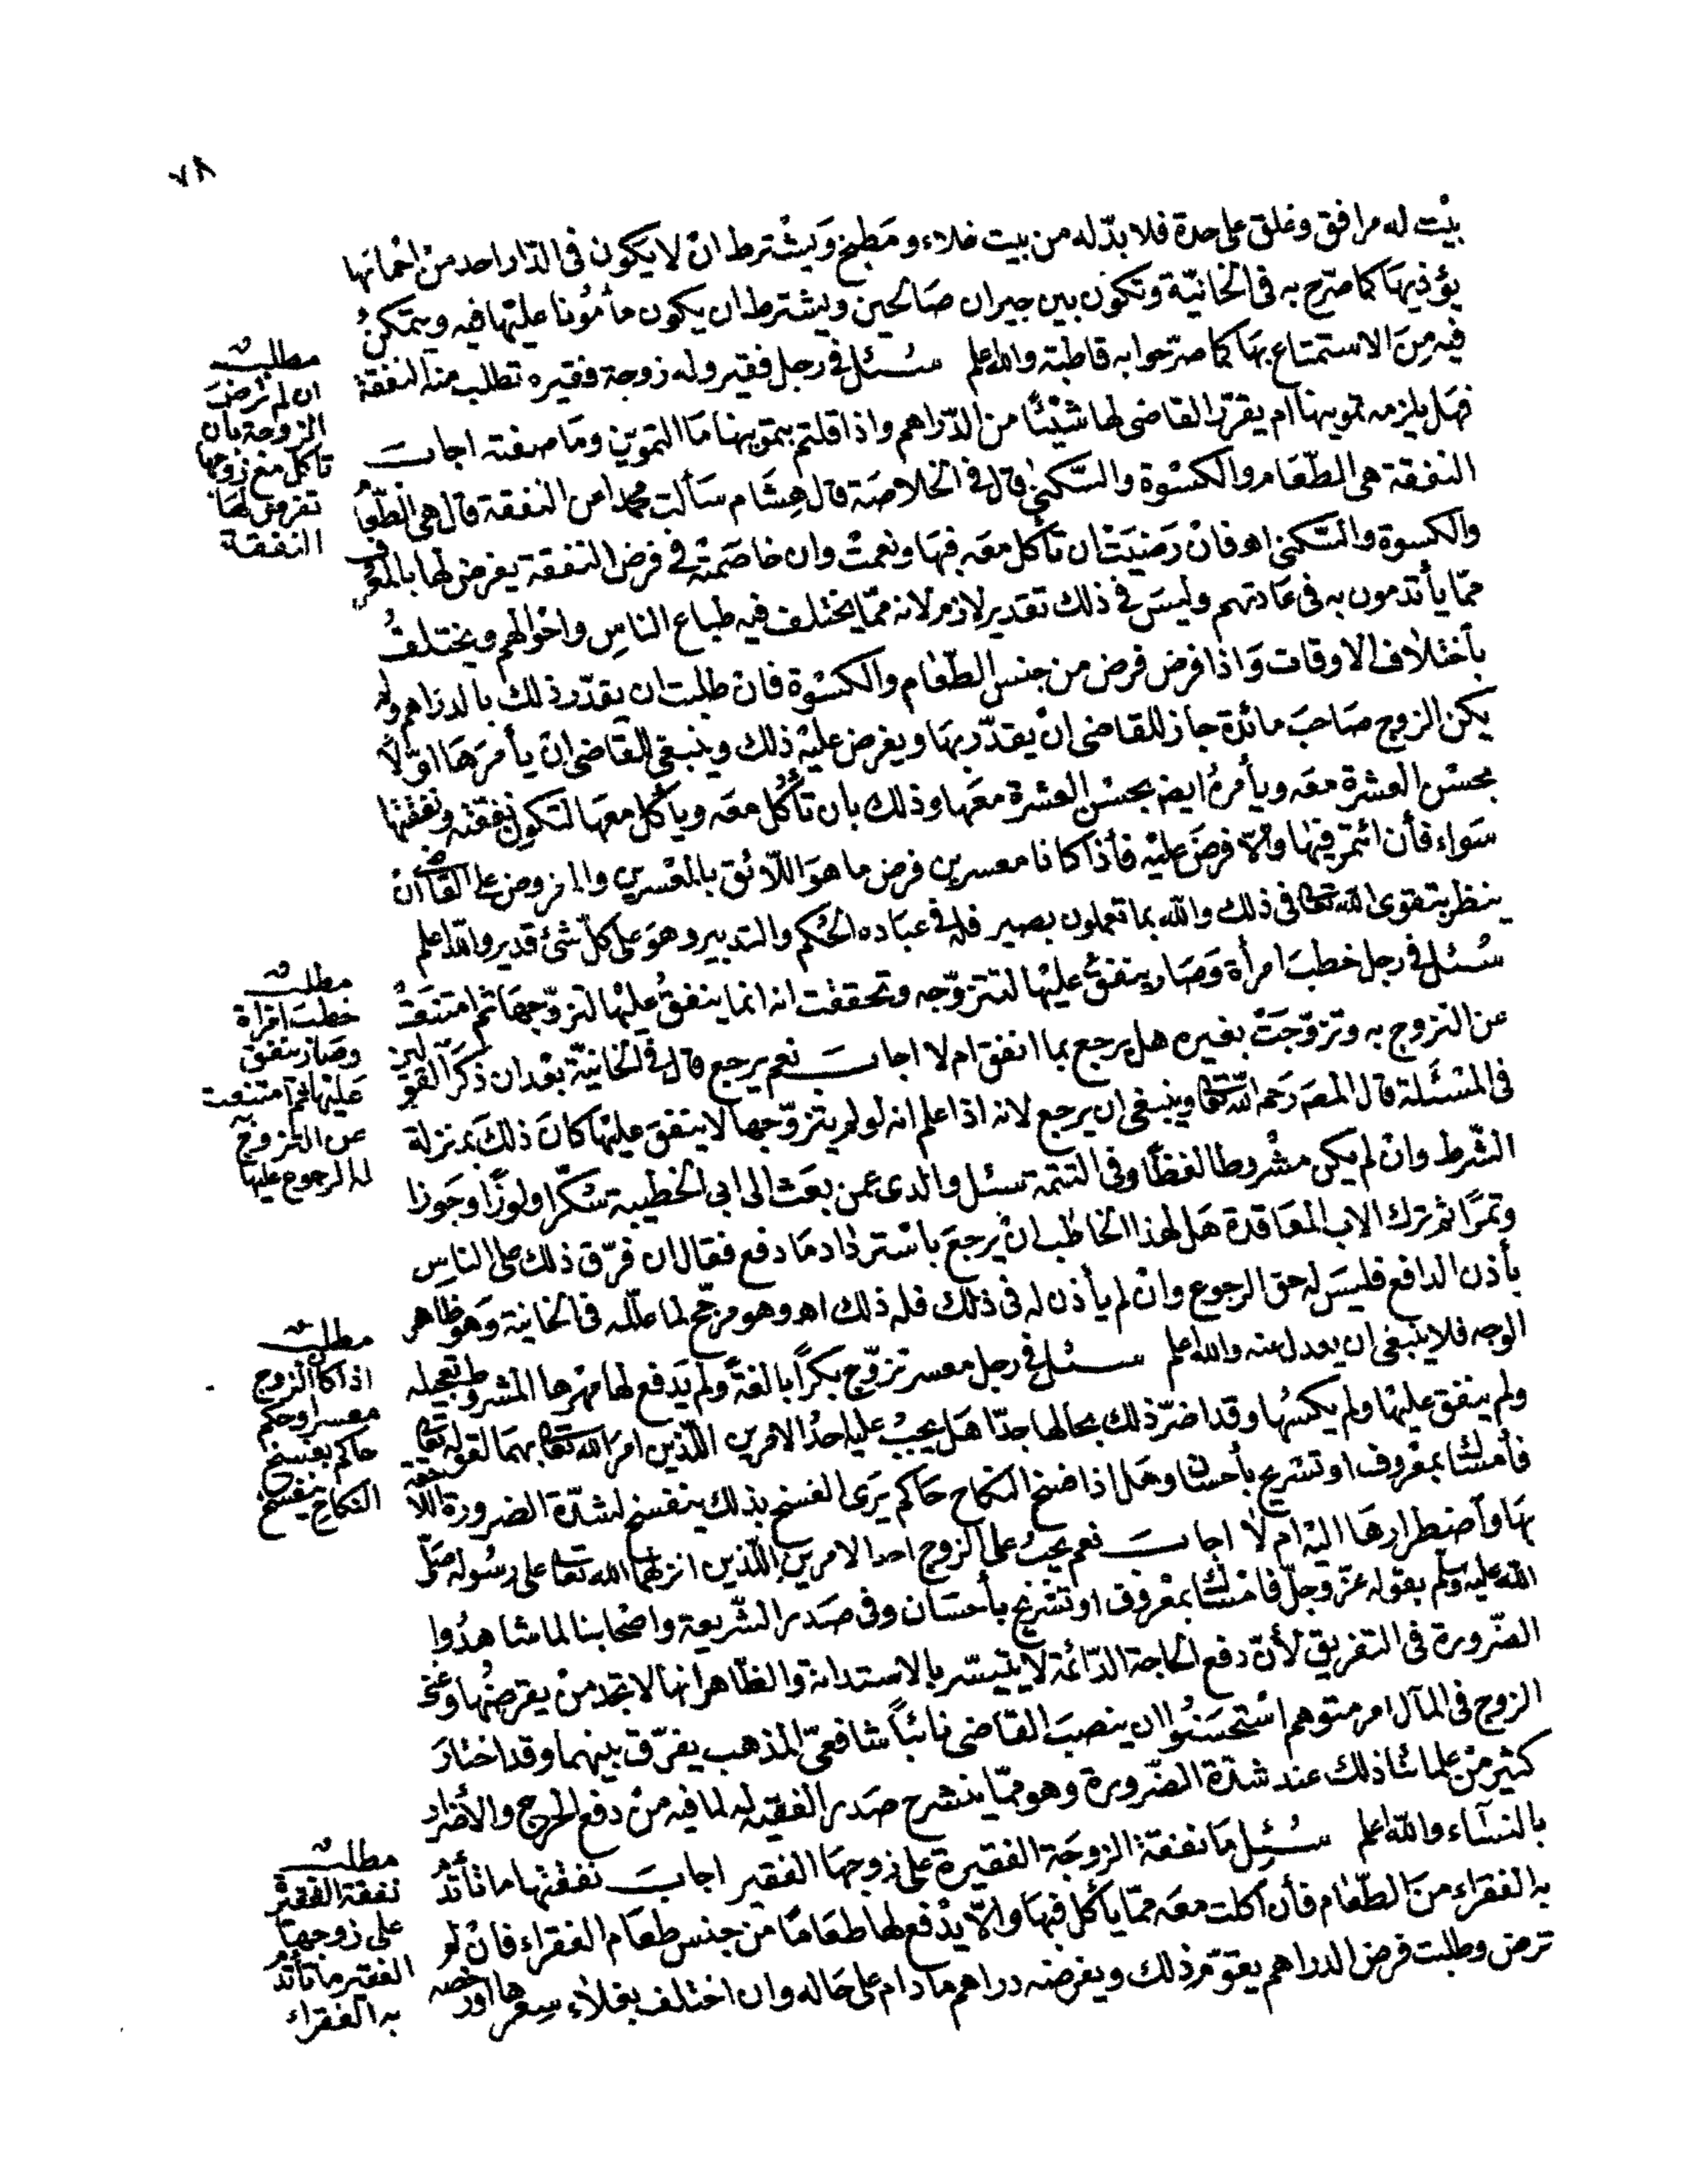 ٧٨
بيْت له مرافق وغلق على حدة فلا بدّ له من بيت خلاء ومَطبخ وَيشْترط انْ لا يَكون فى الدّار احد منْ احْمائها
يؤذيهَا كما صَرّح به فى الخانيّة وتكون بين جيران صَالحين ويشترط ان يكون مأمُونا عليْها فيه ويتمَكنُ
فيه مِنَ الاستمتاع بهَا كما صرّحوا به قاطبَة والله اعلم سُئل فى رجل فقير وله زوجة فقيره تطلب منه النفقة
فهَل يلزمه تموينها ام يقرّر القاضى لها شيْئًا من الدّراهم واذا قلتم بتموينها مَا التموّين ومَا صفته اجاب
النفقة هى الطّعَام والكسْوة والسّكنىٰ قال فى الخلاصَة قال هِشَام سَألت محمدا عن النفقة قال هى الطّعَامُ
والكسوة والسّكنىٰ اهـ فانْ رَضيَتْ ان تأكل معَه فبهَا ونعمتْ وان خاصَمتْه فى فرض النفقة يفرض لها بالمعْروف
ممّا يأتدمون به فى عَادتهم وليسَ فى ذلك تقدير لازم لانه ممّا يختلف فيه طباع الناسِ واحْوالهم ويختلفُ
بأختلاف الاوقات وَاذا فرض فرض من جنس الطّعَام والكسْوة فان طلبت ان يقدّر ذلك بالدراهم ولم
يكن الزوج صَاحبَ مائدة جاز للقاضى انْ يقدّر بهَا ويفرض عليْه ذلك وينبغى للقاضى انَ يأمرَهَا اوّلًا
بحسْن العشرة معَه ويأمرهُ ايضا بحسْن العشرة معَها وذلك بان تأكُل معَه ويأكل معهَا لتكون نفقته ونفقتها
سَواء فأن ائتمر فبهَا والّا فرضَ عليْه فأذا كانا معسرين فرض ما هوَ اللّائق بالمعْسرين والمفروض على القاضى انْ
ينظر بتقوى الله تعالى فى ذلك والله بما تعملون بصير فله فى عبَاده الحُكم والتدبير وهوَ على كلّ شئ قدير والله اعلم
سُئل فى رجل خطبَ امرأة وَصَار ينفقُ عليْها لتتزوّجه وتحققت انه انما ينفقُ عليْها لتزوّجهَا ثم امتنعَتْ
عن التزوج به وتزوّجَتْ بغيره هل يرجع بما انفق ام لا اجاب نعم يرجع قال فى الخانيّة بعْد ان ذكَر القولين
فى المسْئَلة قال المصَ رَحمه الله تعالى وينبغى ان يرجع لانه اذا علم انه لو لم يتزوّجها لا ينفق عليها كانَ ذلكَ بمنزلة
الشّرط وانْ لم يكن مشْروطا لفظًا وفى التتمة سئل والدى عمن بعَث الى ابى الخطيبة سُكّرا ولوزًا وجَوزا
وتمرًا ثم ترك الاب المعَاقدة هَل لهذا الخاطب انْ يرجعَ باسْتردَاد مَا دفع فقال ان فرّق ذلك على الناسِ
بأذن الدافع فليسَ له حق الرجوع وانْ لم يأذن له فى ذلك فله ذلك اهـ وهو مرجّح لما علله فى الخانية وَهوَ ظاهر
الوجه فلا ينبغى ان يعدل عنه والله اعلم سئل فى رجل معسر تزوّج بكرًا بالغةً ولم يَدفع لها مهْرها المشروط تعجيله
ولم ينفق عليْها ولم يكسُها وقد اضرّ ذلك بحالها جدّا هَل يجبُ عليه احدُ الامرين اللّذين امر الله تعالى بهمَا لقوله تعالى
فأمسَاك بمعْروف او تسْريح بأحسَان وهل اذا فسَخ النكاح حَاكم يَرى الفسخ بذلك ينفسخ لشدّة الضرورة اللاحقة
بهَا وآضطرارها اليْه ام لا اجاب نعم يجبُ على الزوج احد الامرين اللّذين انزلهما الله تعَالى على رسُوله صَلى
الله عليه وسَلم بقوله عزّ وجلّ فامْسَاك بمعْروف او تسْريح بأحسَان وفى صَدر الشّريعة واصْحَابنا لما شاهدُوا
الضّرورة فى التفريق لأنّ دفع الحاجة الدّائمَة لا يتيسّر بالاستدانة والظاهر انها لا تجد منْ يقرضهُا وغنى
الزوج فى المآل امر متوهم اسْتحسَنُوا ان ينصبَ القاضى نائباً شافعىّ المذهب يفرّق بينهما وقد اختارَ
كثير منْ علمائنا ذلك عند شدّة الضّرورة وهو ممّا ينشرح صَدر الفقيه له لما فيه منْ دفع الحرج والأضرار
بالنسَاء والله اعلم سُئل مَا نفقة الزوجَة الفقيرة على زوجهَا الفقير اجاب نفقتها ما تأتدمُ
به الفقراء منَ الطّعَام فأن أكلت معَه ممّا يأكل فبهَا والّا يدْفع لها طعَامًا من جنس طعَام الفقراء فانْ لم
ترض وطلبت فرض الدراهم يقوّم ذلك ويفرضه دراهم مَا دام على حَاله وان اختلف بغلاء سِعْرها او رخصه
مطلب
ان لم ترضَ
الزوجة بان
تأكل مع زوجها
تفرض لهَا
النفقة
مطلب
خطبَ امْراة
وصَار ينفق
عَليْها ثم امتنعت
عن التزوج
له الرجوع عليها
مطلب
اذا كان الزوج
معسرا وحكم
حاكم بفسْخ
النكاح ينفسخ
مطلب
نفقة الفقيرة
على زوجهَا
الفقير ما تأتدمُ
به الفقراء